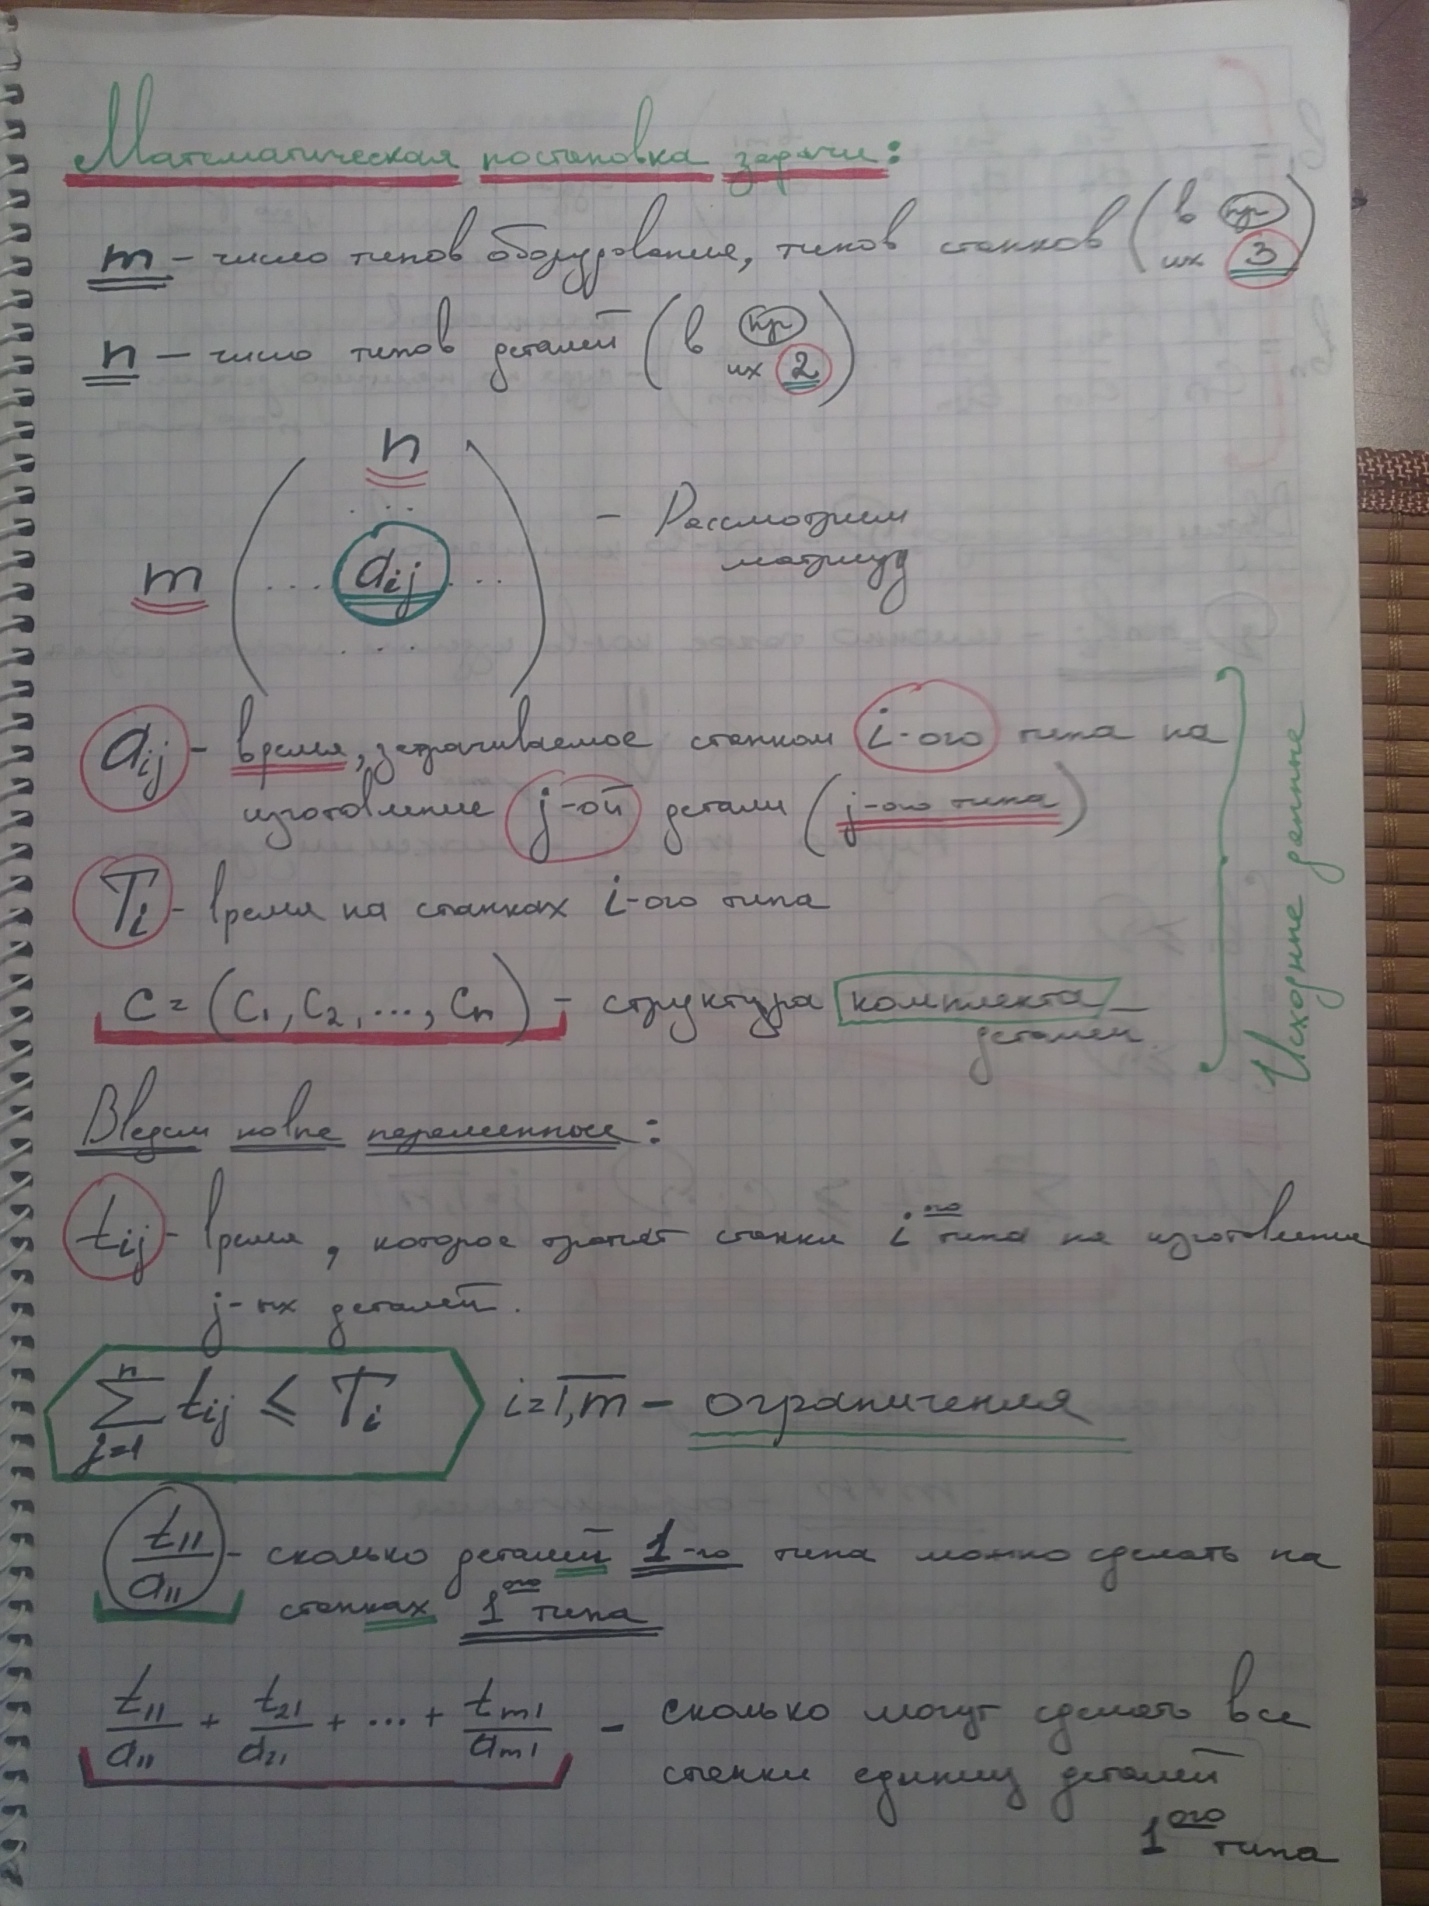 Математическая постановка задачи:
m – число типов оборудования, типов станков (в пр их 3)
n – число типов деталей (в пр их 2)
n
...
m ( ... aij ... ) – Рассмотрим
матрицу
...
aij – время, затрачиваемое станком i-ого типа на
изготовление j-ой детали (j-ого типа)
Ti – время на станках i-ого типа
C = (C1, C2, ..., Cn) – структура комплекта
деталей
Исходные данные
Введем новые переменные:
tij – время, которое тратят станки i ого типа на изготовление
j-ых деталей.
∑ⁿj=1 tij ≤ Ti i=1,m – ограничения
t11/a11 – сколько деталей 1-го типа можно сделать на
станках 1 ого типа
t11/a11 + t21/a21 + ... + tm1/am1 – сколько могут сделать все
станки единиц деталей
1 ого типа